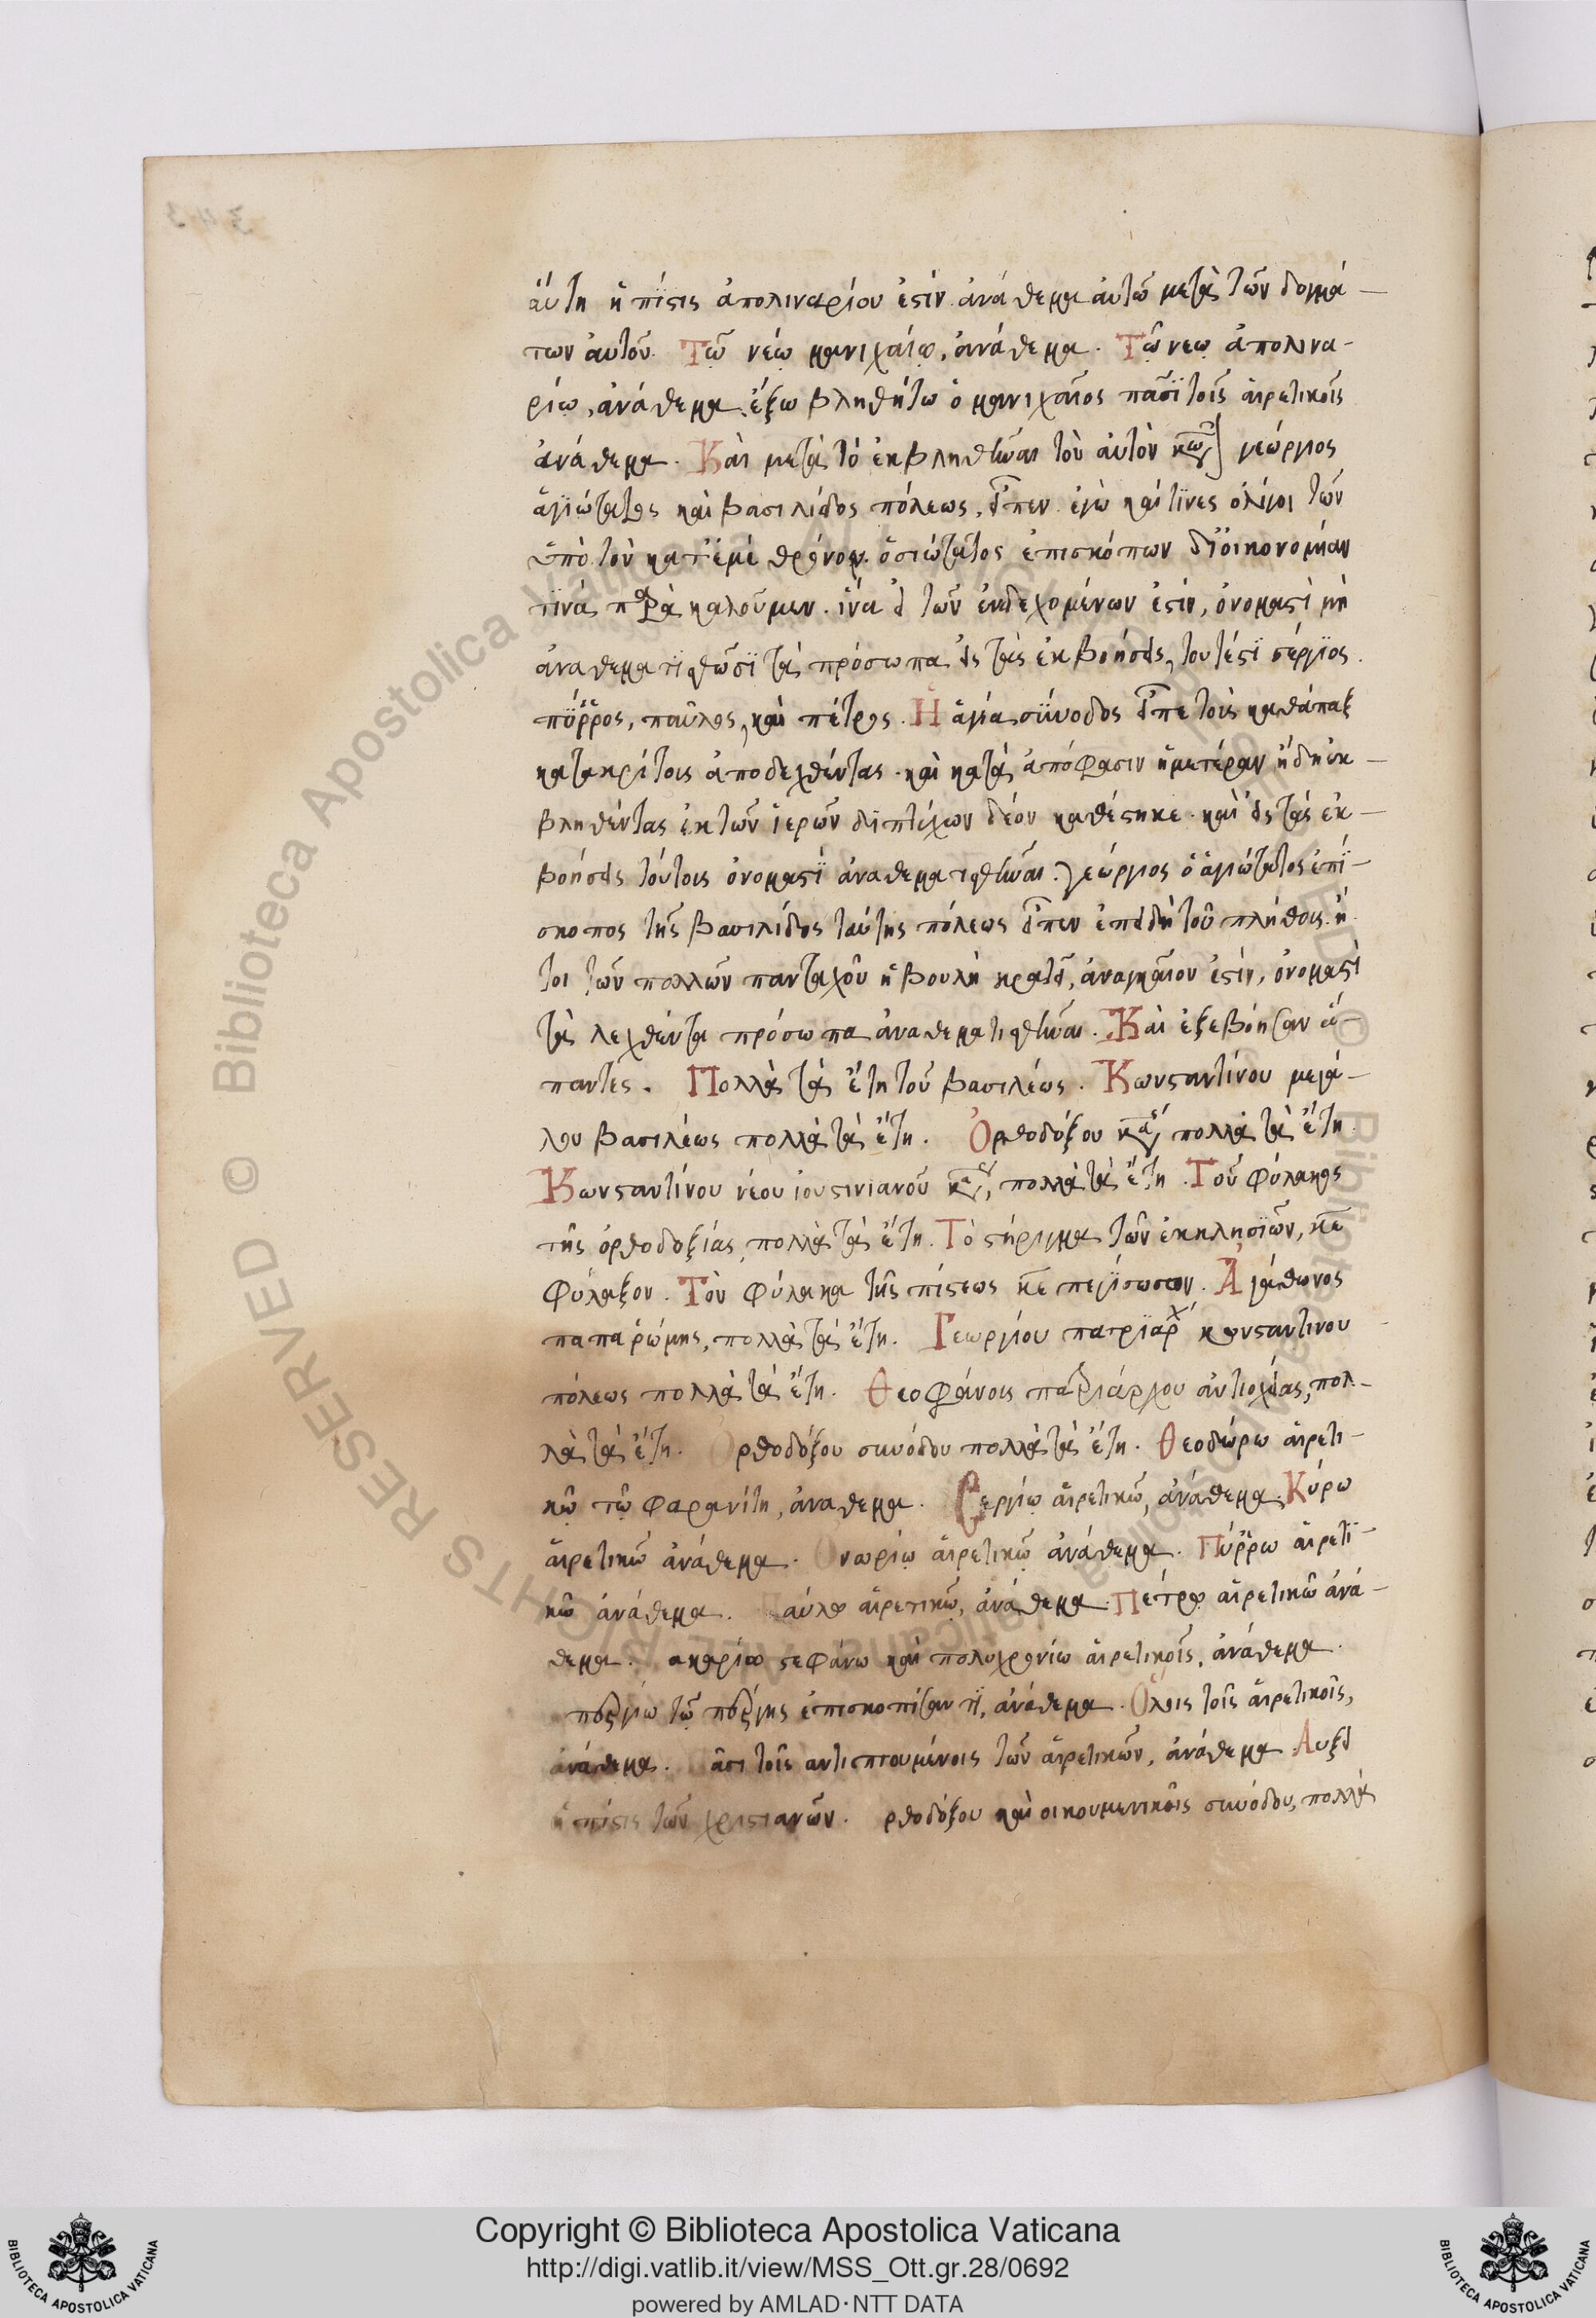 ἅυτη ἡ πίστις ἀπολιναρίου ἐστίν. ἀνάθεμα ἀυτῶ μετὰ τῶν δογμά-
των ἀυτοῦ. Τῶ νέω μανιχαίω, ἀνάθεμα. Τῶ νεω ἀπολινα-
ρίω, ἀνάθεμα. ἔξω βληθήτω ὁ μανιχαῖος πᾶσϊ τοῖς ἁιρετικοῖς
ἀνάθεμα. Καὶ μετὰ τὸ ἐκβληθῆναι τὸν ἀυτὸν γεώργιος
ἁγιώτατος καὶ βασιλίδος πόλεως, εἶπεν. ἐγὼ καί τϊνες ὀλίγοι τῶν
ὑπὸ τὸν κατ' ἐμὲ θρόνον. ὁσιώτατος ἐπισκόπων δϊοικονομίαν
τϊνὰ παρακαλοῦμεν. ἵνα εἰ τῶν ἐνδεχομένων ἐστίν, ὀνομαστὶ μὴ
ἀναθεματϊσθῶσϊ τὰ πρόσωπα εἰς τὰς ἐκβοήσεις, τουτέστϊ σέργϊος.
πύῤῥος, παῦλος, καὶ πέτρος. Ἡ ἁγία σύνοδος εἶπε τοὺς καθάπαξ
κατακρίτοις ἀποδεχθέντας. καὶ κατὰ ἀπόφασιν ἡμετέραν ἤδη ἐκ-
βληθέντας ἐκ τῶν ἱερῶν δϊπτύχων δέον καθέστηκε. καὶ εἰς τὰς ἐκ-
βοήσεις τούτοις ὀνομαστὶ ἀναθεματισθῆναι. γεώργιος ὁ ἁγιώτατος ἐπί-
σκοπος τῆς βασιλίδος ταύτης πόλεως εἶπεν ἐπειδὴ τοῦ πλήθους. ἤ
τοι τῶν πολλῶν πανταχοῦ ἡ βουλὴ κρατεῖ, ἀναγκαῖον ἐστίν, ὀνομαστὶ
τὰ λεχθέντα πρόσωπα ἀναθεματισθῆναι. Καὶ ἐξεβόησαν ἅ-
παντες. Πολλὰ τὰ ἔτη τοῦ βασιλέως. Κωνσταντίνου μεγά-
λου βασιλέως πολλὰ τὰ ἔτη. Ὀρθοδόξου πολλὰ τὰ ἔτη.
Κωνσταντίνου νέου ἰουστινιανοῦ πολλὰ τὰ ἔτη. Τοῦ φύλακος
τῆς ὀρθοδοξίας, πολλὰ τὰ ἔτη. Τὸ στήριγμα τῶν ἐκκλησϊῶν, κε
φύλαξον. Τὸν φύλακα τῆς πίστεως κε περίσωσον. Ἀγάθωνος
παπα ῥώμης, πολλὰ τὰ ἔτη. Γεωργίου πατρϊάρχ κωνσταντινου
πόλεως πολλὰ τὰ ἔτη. Θεοφάνους πατριάρχου ἀντιοχείας, πολ-
λὰ τὰ ἔτη. Ορθοδόξου συνόδου πολλὰ τὰ ἔτη. Θεοδώρω ἁιρετι-
κῶ τῶ φαρανίτη, ἀναθεμα. Σεργίω ἁιρετικῶ, ἀνάθεμα. Κύρω
ἁιρετικῶ ἀνάθεμα. Ονωρίω ἁιρετικῶ ἀνάθεμα. Πύῤῥω ἁιρετϊ-
κῶ ἀνάθεμα. Παύλω ἁιρετικῶ, ἀνάθεμα. Πέτρω ἁιρετικῶ ἀνά-
θεμα. ακαρίω στεφάνω καὶ πολυχρονίω ἁιρετικοῖς, ἀνάθεμα.
τῶ ἐπισκοπίσαντϊ, ἀνάθεμα. Ὅλοις τοῖς ἁιρετικοῖς,
ἀνάθεμα. ᾶσι τοῖς αντισποιουμένοις τῶν ἁιρετικῶν, ἀνάθεμα. Αυξεῖ
ἡ πίστις τῶν χριστιανῶν. ρθοδόξου καὶ οικουμενικῆς συνόδου, πολλὰ
Copyright © Biblioteca Apostolica Vaticana
http://digi.vatlib.it/view/MSS_Ott.gr.28/0692
powered by AMLAD·NTT DATA